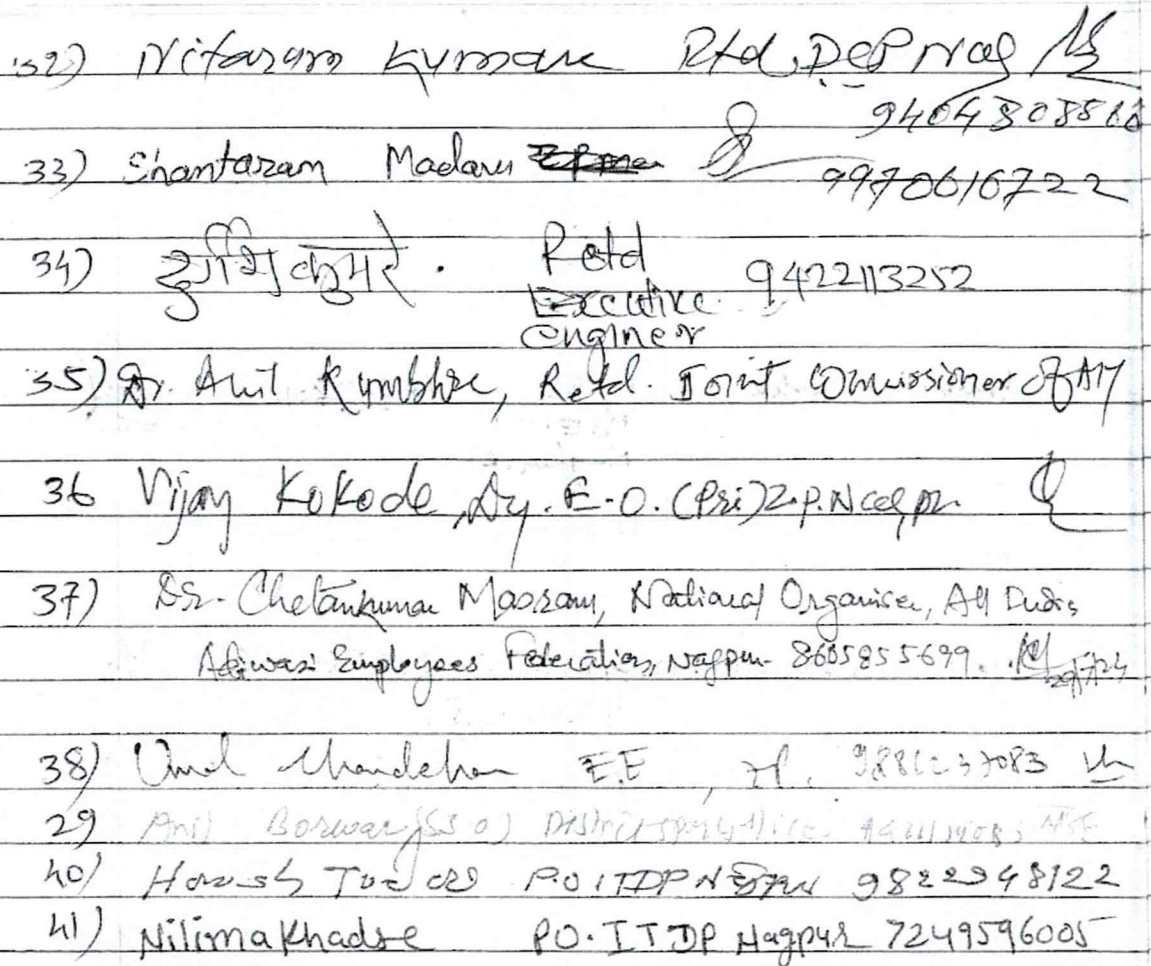 32) Nitaram Kumare Rtd. DCP Nag
9404308588
33) Shantaram Madavi
9970616722
34) दुर्गाशि कुमरे . Retd Executive engineer 9422113252
35) Dr. Anil Kumbhre, Retd. Joint Commissioner of AH
36 Vijay Kokode, Dy. E.O. (Pri) Z.P. Nagpur
37) Dr. Chetankumar Masram, National Organiser, All India
Adiwasi Employees Federation, Nagpur - 8605855699. 29/7/24
38) E.E
29 Anil Borwar (SSO) District
40) Haresh P.O ITDP 9822948122
41) Nilima Khadse PO. ITDP Nagpur 7249596005